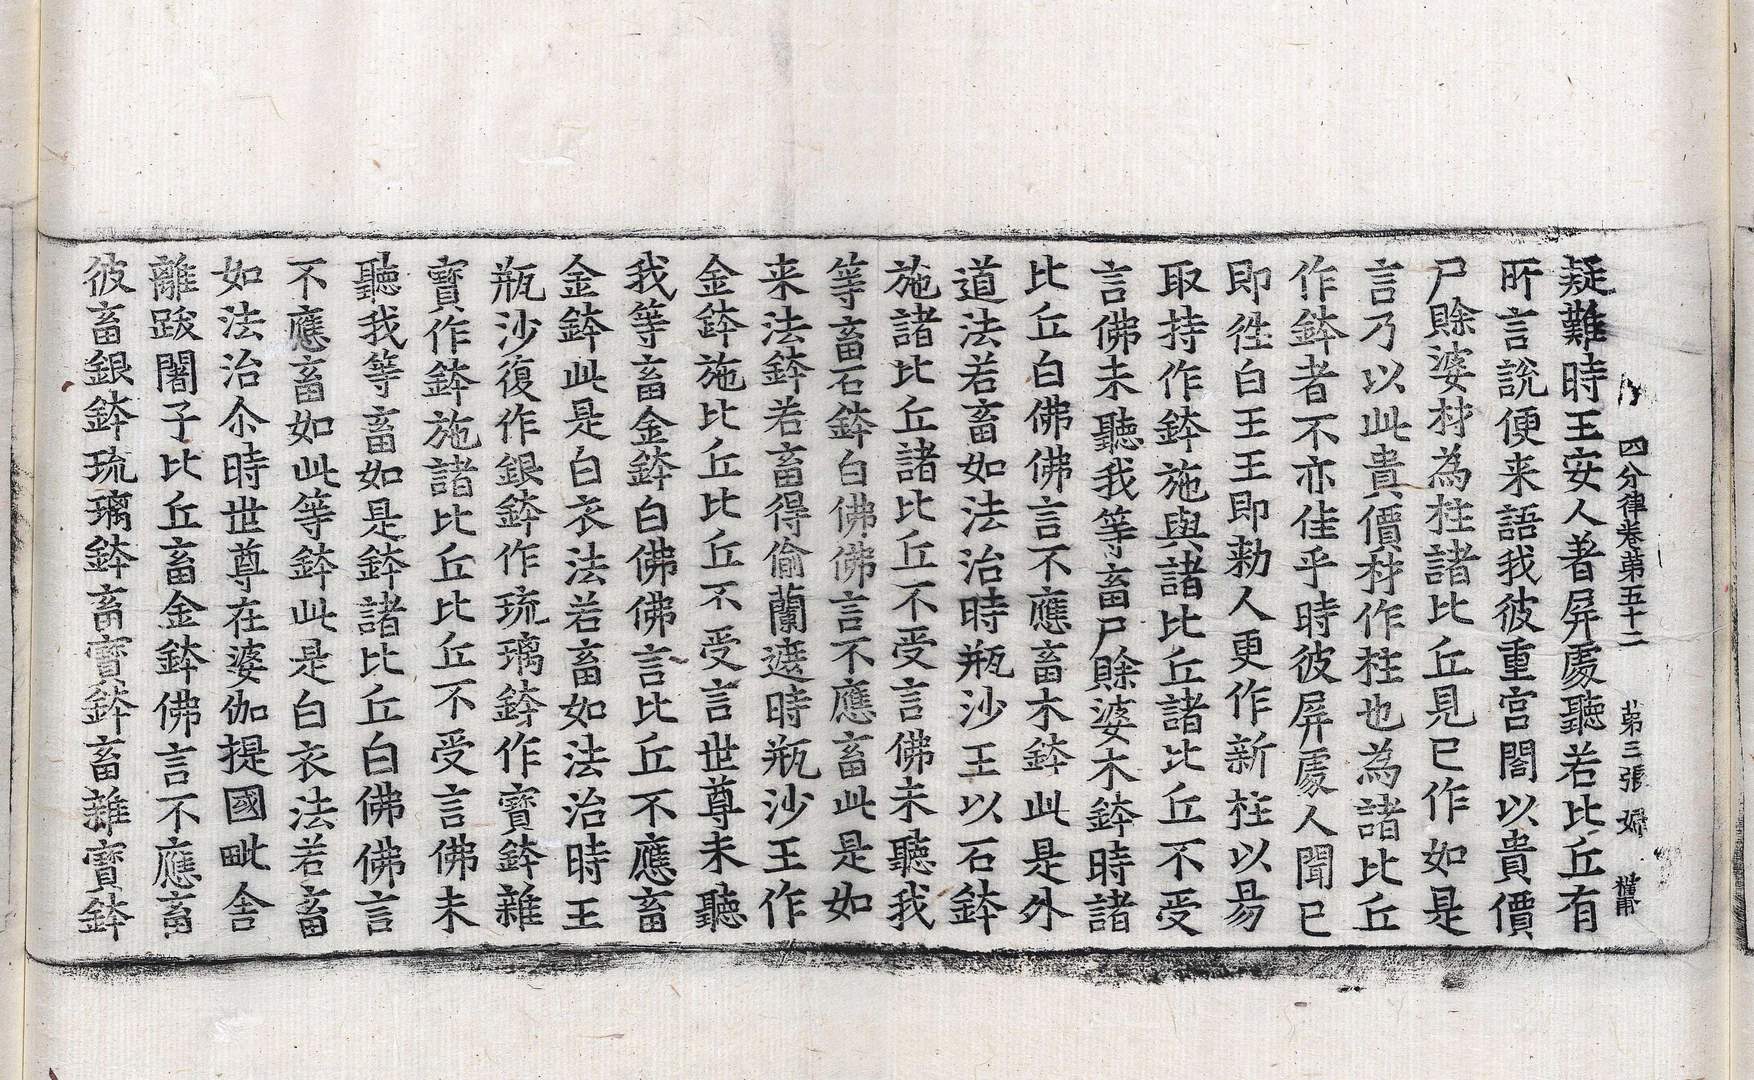 四分律卷第五十二 第三張 婦
疑難時王安人著屏處聽若比丘有
所言說便来語我彼重宮閣以貴價
尸賖婆材為柱諸比丘見已作如是
言乃以此貴價材作柱也為諸比丘
作鉢者不亦佳乎時彼屏處人聞已
即徃白王王即勑人更作新柱以昜
取持作鉢施與諸比丘諸比丘不受
言佛未聽我等畜尸賖婆木鉢時諸
比丘白佛佛言不應畜木鉢此是外
道法若畜如法治時瓶沙王以石鉢
施諸比丘諸比丘不受言佛未聽我
等畜石鉢白佛佛言不應畜此是如
来法鉢若畜得偷蘭遮時瓶沙王作
金鉢施比丘比丘不受言世尊未聽
我等畜金鉢白佛佛言比丘不應畜
金鉢此是白衣法若畜如法治時王
瓶沙復作銀鉢作琉璃鉢作寶鉢雜
寶作鉢施諸比丘比丘不受言佛未
聽我等畜如是鉢諸比丘白佛佛言
不應畜如此等鉢此是白衣法若畜
如法治尒時世尊在婆伽提國毗舍
離跋闍子比丘畜金鉢佛言不應畜
彼畜銀鉢琉璃鉢畜寶鉢畜雜寶鉢